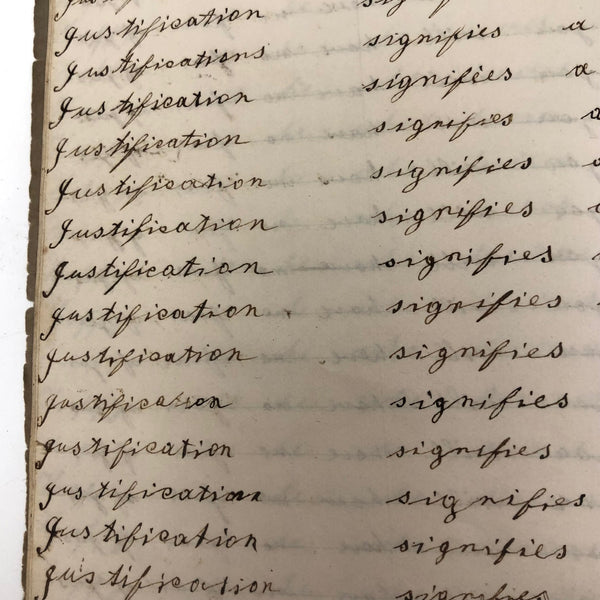 Justification signifies a
Justifications signifies a
Justification signifies a
Justification signifies
Justification signifies
Justification signifies
Justification signifies
Justification signifies
Justification signifies
Justification signifies
Justification signifies
Justification signifies
Justification signifies
Justification signifies